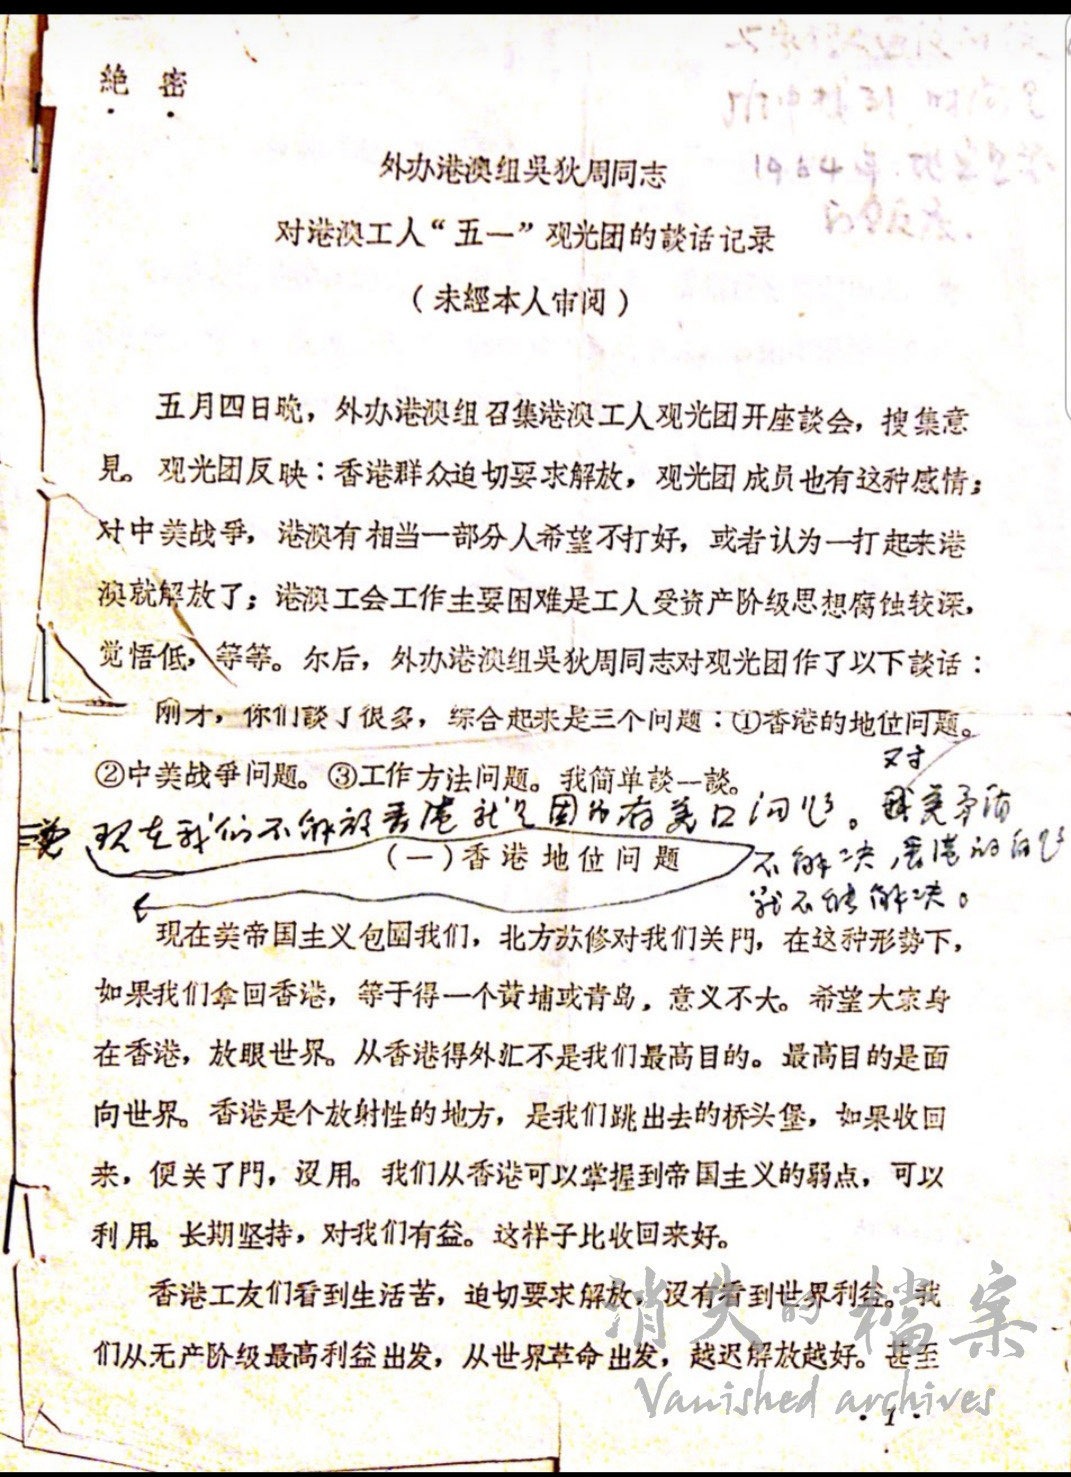 絶密
外办港澳组吳狄周同志
对港澳工人“五一”观光团的談话记录
（未經本人审阅）
五月四日晚，外办港澳组召集港澳工人观光团开座談会，搜集意
見。观光团反映：香港群众迫切要求解放，观光团成员也有这种感情；
对中美战爭，港澳有相当一部分人希望不打好，或者认为一打起来港
澳就解放了；港澳工会工作主要困难是工人受资产阶级思想腐蚀较深，
觉悟低，等等。尔后，外办港澳组吳狄周同志对观光团作了以下談话：
刚才，你们談了很多，综合起来是三个问题：①香港的地位问题。
②中美战爭问题。③工作方法问题。我简单談一談。
现在我们不解放香港就是因为存美口问题。对美矛盾
不解决，香港的问题
就不能解决。
（一）香港地位问题
现在美帝国主义包圍我们，北方苏修对我们关門，在这种形势下，
如果我们拿回香港，等于得一个黄埔或青岛，意义不大。希望大家身
在香港，放眼世界。从香港得外汇不是我们最高目的。最高目的是面
向世界。香港是个放射性的地方，是我们跳出去的桥头堡，如果收回
来，便关了門，沒用。我们从香港可以掌握到帝国主义的弱点，可以
利用。长期坚持，对我们有益。这样子比收回来好。
香港工友们看到生活苦，迫切要求解放，沒有看到世界利益。我
们从无产阶级最高利益出发，从世界革命出发，越迟解放越好。甚至
消失的檔案
Vanished archives
·1·